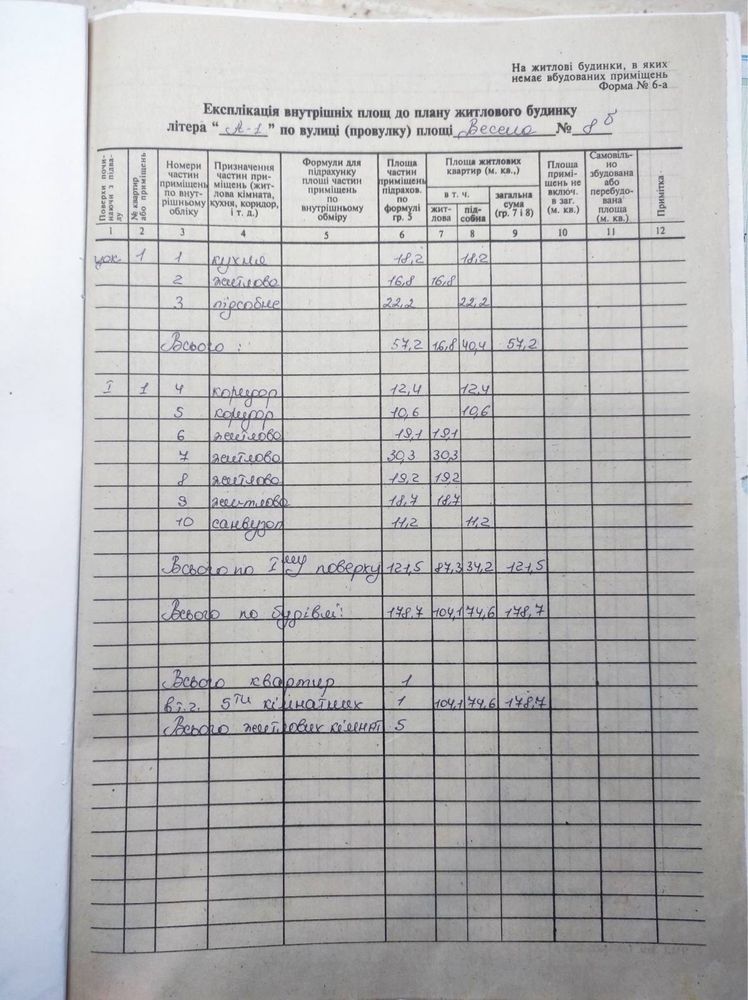 На житлові будинки, в яких
немає вбудованих приміщень
Форма № 6-а
Експлікація внутрішніх площ до плану житлового будинку
літера “ А-1 ” по вулиці (провулку) площі Весела № 8 б
Поверхи почи-
наючи з підва-
лу
№ квартир
або приміщень
Номери
частин
приміщень
по внут-
рішньому
обліку
Призначення
частин при-
міщень (жит-
лова кімната,
кухня, коридор,
і т. д.)
Формули для
підрахунку
площі частин
приміщень
по
внутрішньому
обміру
Площа
частин
приміщень
підрахов.
по
формулі
гр. 5
Площа житлових
квартир (м. кв.,)
в т. ч.
жит-
лова
під-
собна
загальна
сума
(гр. 7 і 8)
Площа
примі-
щень не
включ.
в заг.
(м. кв.)
Самовіль-
но
збудована
або
перебудо-
вана
площа
(м. кв.)
Примітка
1 2 3 4 5 6 7 8 9 10 11 12
цок 1 1 кухня 18,2 18,2
2 житлова 16,8 16,8
3 підсобне 22,2 22,2
Всього : 57,2 16,8 40,4 57,2
I 1 4 коридор 12,4 12,4
5 коридор 10,6 10,6
6 житлова 19,1 19,1
7 житлова 30,3 30,3
8 житлова 19,2 19,2
9 житлова 18,7 18,7
10 санвузол 11,2 11,2
Всього по I му поверху 121,5 87,3 34,2 121,5
Всього по будівлі: 178,7 104,1 74,6 178,7
Всього квартир 1
в т.г. 5ти кімнатних 1 104,1 74,6 178,7
Всього житлових кімнат 5